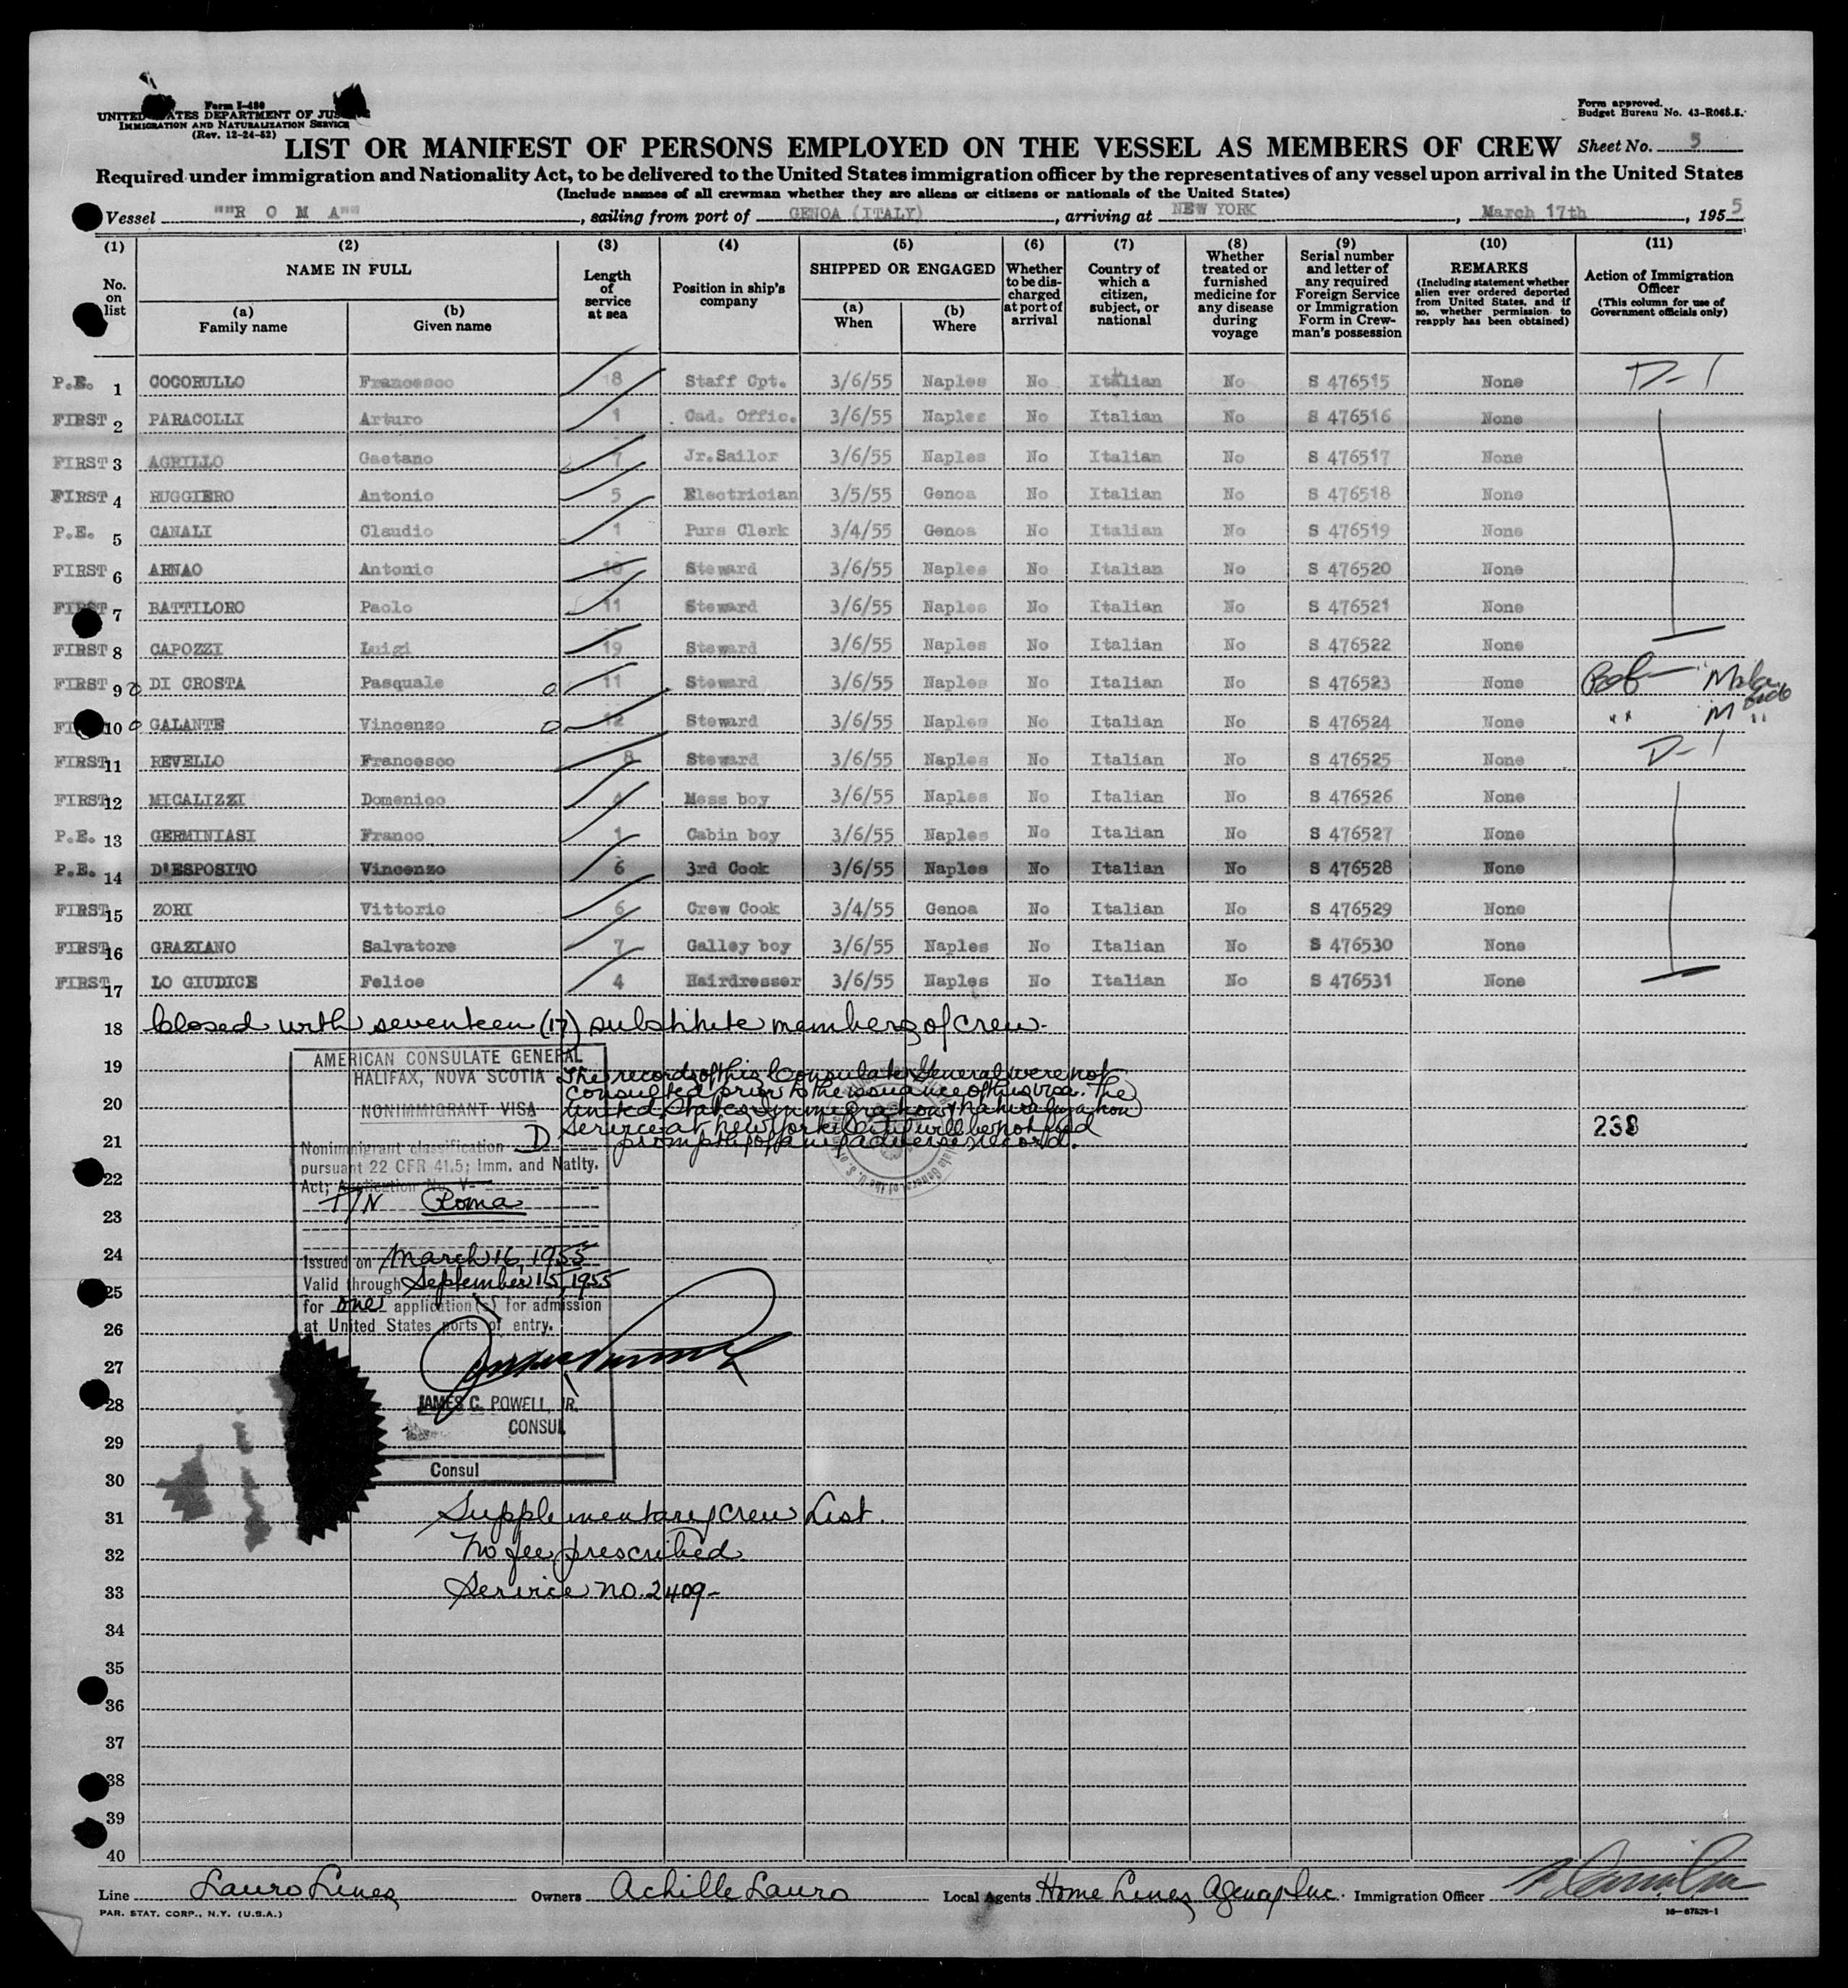 Form I-480
UNITED STATES DEPARTMENT OF JUSTICE
IMMIGRATION AND NATURALIZATION SERVICE
(Rev. 12-24-52)
Form approved.
Budget Bureau No. 43-R065.5.
LIST OR MANIFEST OF PERSONS EMPLOYED ON THE VESSEL AS MEMBERS OF CREW Sheet No. 5
Required under immigration and Nationality Act, to be delivered to the United States immigration officer by the representatives of any vessel upon arrival in the United States
(Include names of all crewman whether they are aliens or citizens or nationals of the United States)
Vessel ""R O M A"", sailing from port of GENOA (ITALY), arriving at NEW YORK, March 17th, 1955
(1) (2) (3) (4) (5) (6) (7) (8) (9) (10) (11)
No. on list
NAME IN FULL
(a) Family name
(b) Given name
Length of service at sea
Position in ship's company
SHIPPED OR ENGAGED
(a) When
(b) Where
Whether to be discharged at port of arrival
Country of which a citizen, subject, or national
Whether treated or furnished medicine for any disease during voyage
Serial number and letter of any required Foreign Service or Immigration Form in Crewman's possession
REMARKS
(Including statement whether alien ever ordered deported from United States, and if so, whether permission to reapply has been obtained)
Action of Immigration Officer
(This column for use of Government officials only)
P.E. 1 COCORULLO Francesco 18 Staff Cpt. 3/6/55 Naples No Italian No S 476515 None D-1
FIRST 2 PARACOLLI Arturo 1 Cad. Offic. 3/6/55 Naples No Italian No S 476516 None
FIRST 3 AGRILLO Gaetano 7 Jr.Sailor 3/6/55 Naples No Italian No S 476517 None
FIRST 4 RUGGIERO Antonio 5 Electrician 3/5/55 Genoa No Italian No S 476518 None
P.E. 5 CANALI Claudio 1 Purs Clerk 3/4/55 Genoa No Italian No S 476519 None
FIRST 6 ARNAO Antonio 10 Steward 3/6/55 Naples No Italian No S 476520 None
FIRST 7 BATTILORO Paolo 11 Steward 3/6/55 Naples No Italian No S 476521 None
FIRST 8 CAPOZZI Luigi 19 Steward 3/6/55 Naples No Italian No S 476522 None
FIRST 9 DI CROSTA Pasquale 11 Steward 3/6/55 Naples No Italian No S 476523 None
10 GALANTE Vincenzo 12 Steward 3/6/55 Naples No Italian No S 476524 None
FIRST 11 REVELLO Francesco 8 Steward 3/6/55 Naples No Italian No S 476525 None D-1
FIRST 12 MICALIZZI Domenico 4 Mess boy 3/6/55 Naples No Italian No S 476526 None
P.E. 13 GERMINIASI Franco 1 Cabin boy 3/6/55 Naples No Italian No S 476527 None
P.E. 14 D'ESPOSITO Vincenzo 6 3rd Cook 3/6/55 Naples No Italian No S 476528 None
FIRST 15 ZORI Vittorio 6 Crew Cook 3/4/55 Genoa No Italian No S 476529 None
FIRST 16 GRAZIANO Salvatore 7 Galley boy 3/6/55 Naples No Italian No S 476530 None
FIRST 17 LO GIUDICE Felice 4 Hairdresser 3/6/55 Naples No Italian No S 476531 None
18 Closed with seventeen (17) substitute members of crew.
AMERICAN CONSULATE GENERAL
HALIFAX, NOVA SCOTIA
NONIMMIGRANT VISA
Nonimmigrant classification D
pursuant 22 CFR 41.5; Imm. and Natlty.
Act; Application No. V-
T/N Roma
Issued on March 16, 1955
Valid through September 15, 1955
for one application(s) for admission
at United States ports of entry.
JAMES C. POWELL, JR.
CONSUL
Consul
The records of this Consulate General were not
consulted prior to the issuance of this visa. The
United States Immigration & Naturalization
Service at New York Seattle will be notified
promptly of any adverse record.
238
19
20
21
22
23
24
25
26
27
28
29
30
31 Supplementary Crew List.
32 No fee prescribed
33 Service no. 2409-
34
35
36
37
38
39
40
Line Lauro Lines Owners Achille Lauro Local Agents Home Lines Agency Inc. Immigration Officer
PAR. STAT. CORP., N.Y. (U.S.A.)
16-67529-1